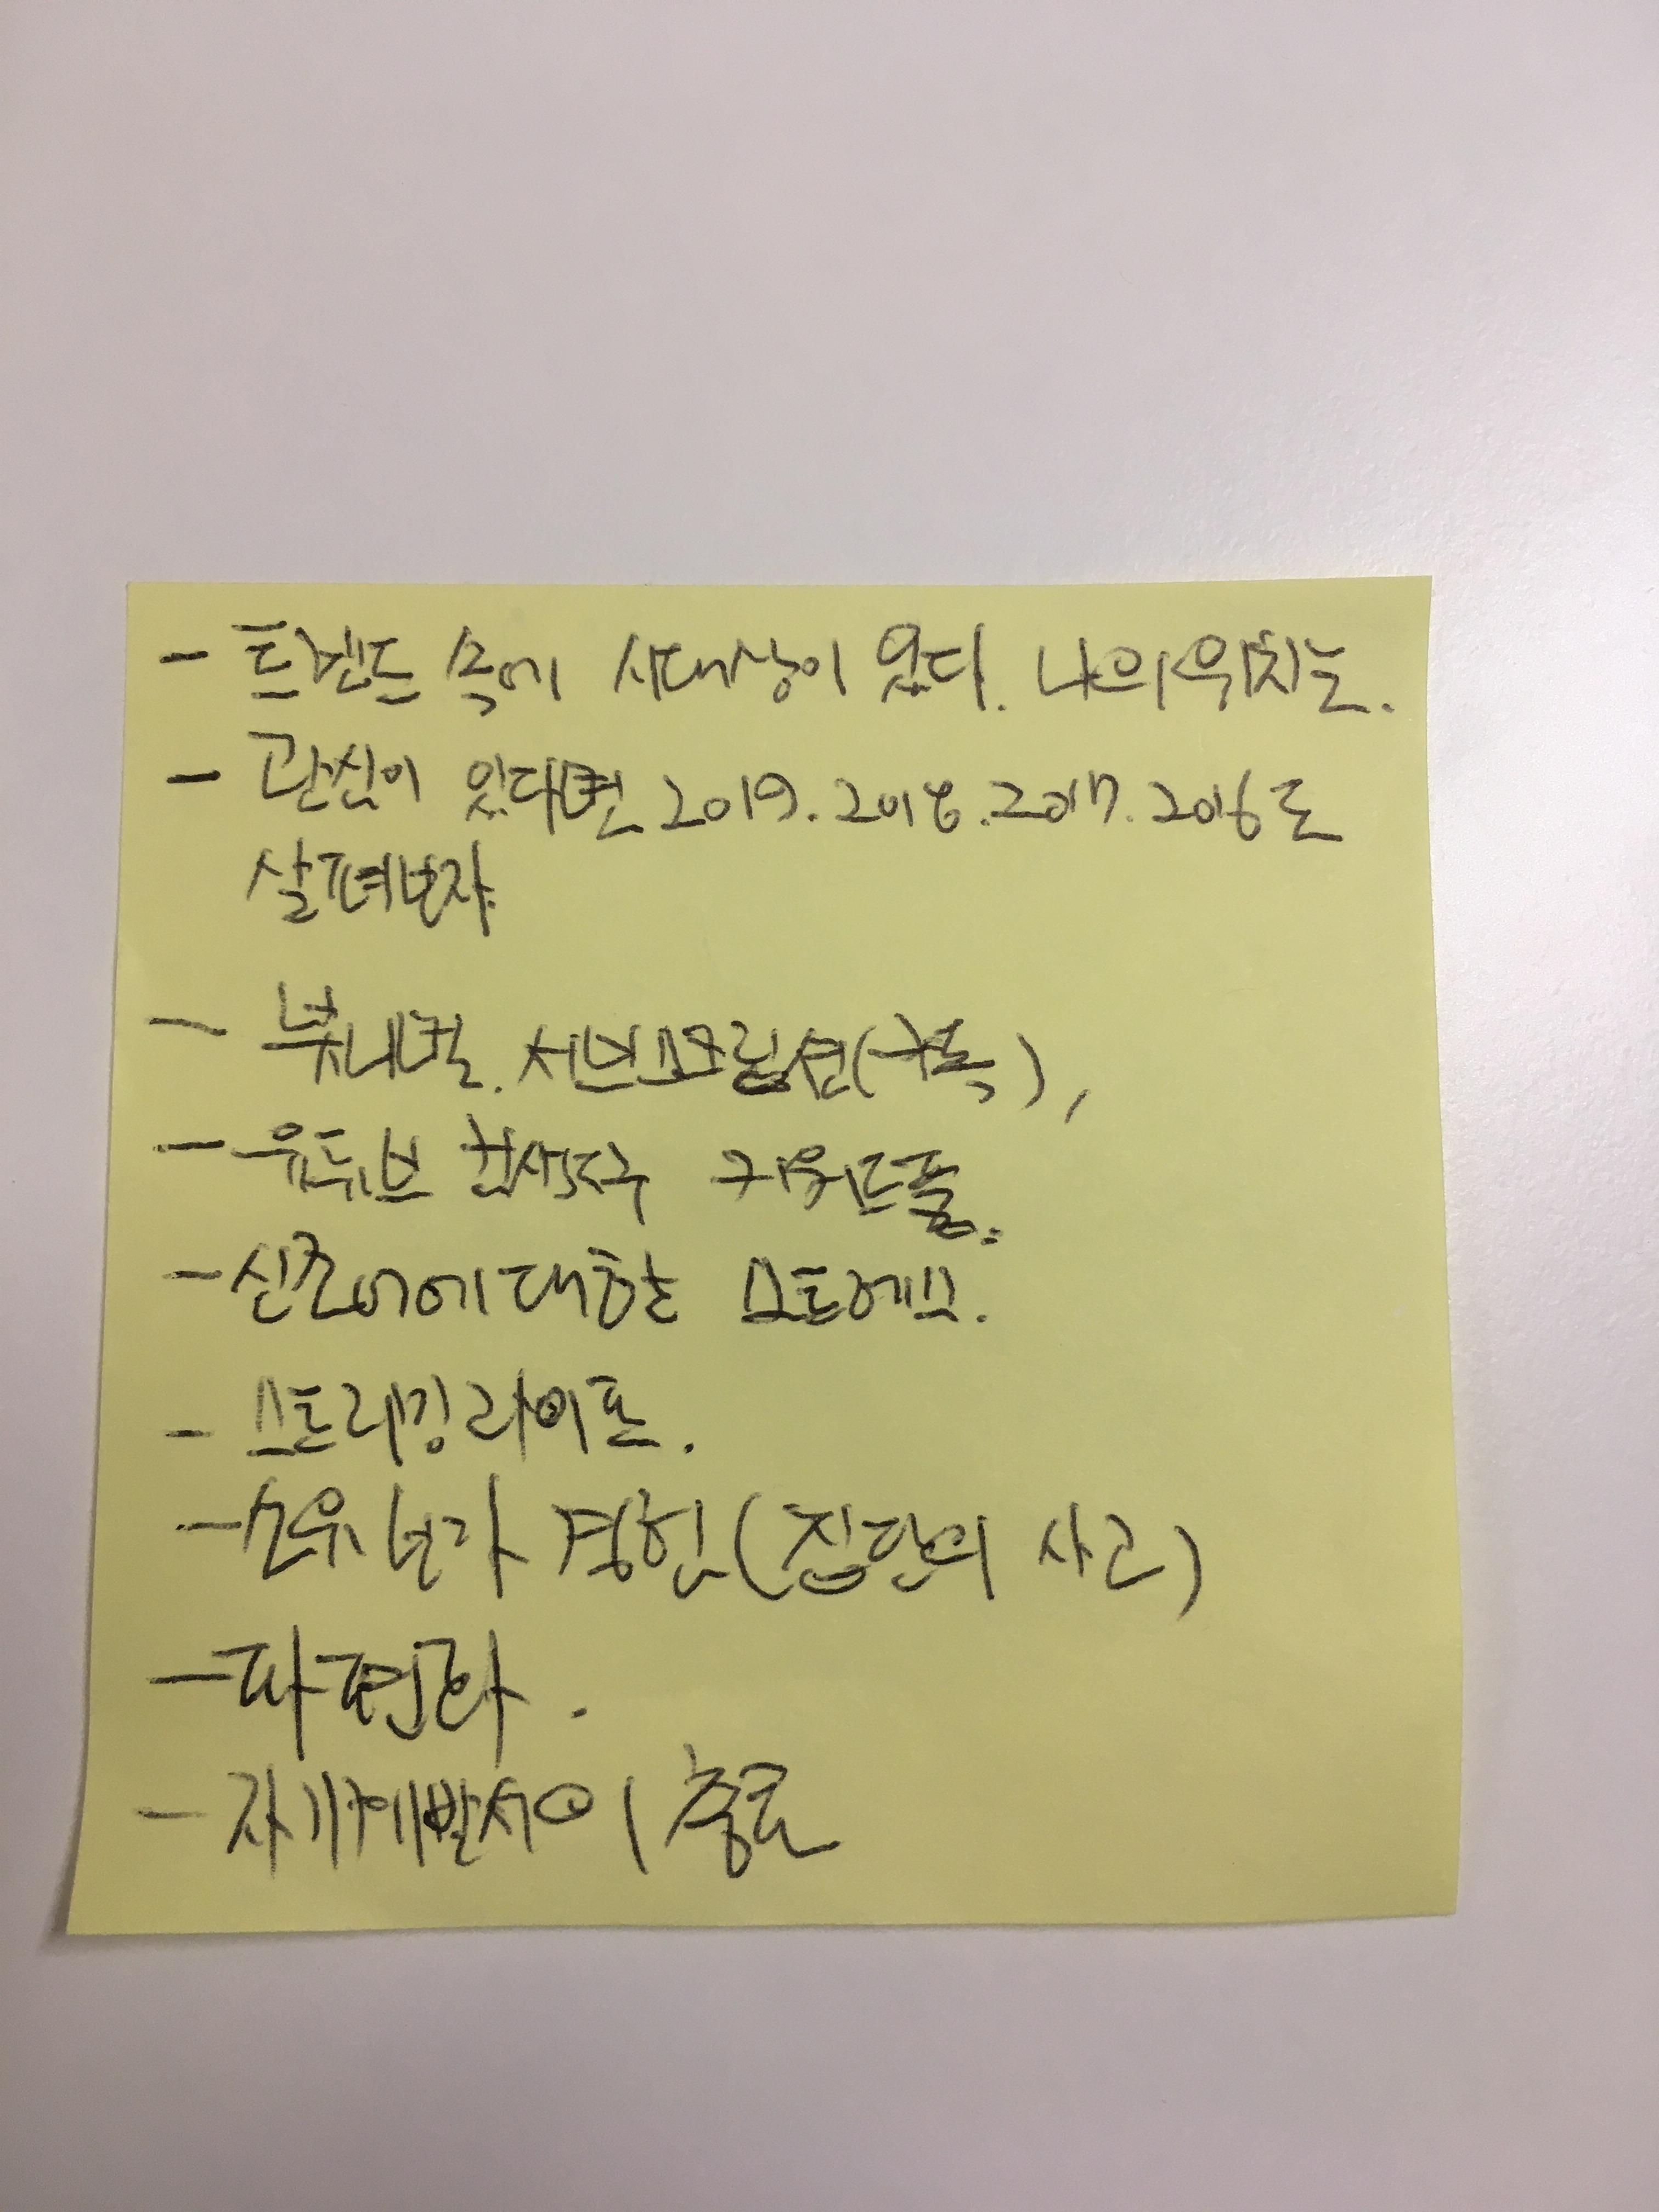 - 트렌드 속에 시대상이 있다. 나의 위치는.
- 관심이 있다면 2019. 2018. 2017. 2016도
살펴보자
- 뷰니멀. 서브스크립션(구독),
- 유튜브 검색량 키워드풀.
- 신조어에 대한 스트레스.
- 스트리밍라이프.
- 소유보다 경험 (집단의 사고)
- 다 편하다.
- 자기계발서의 종료